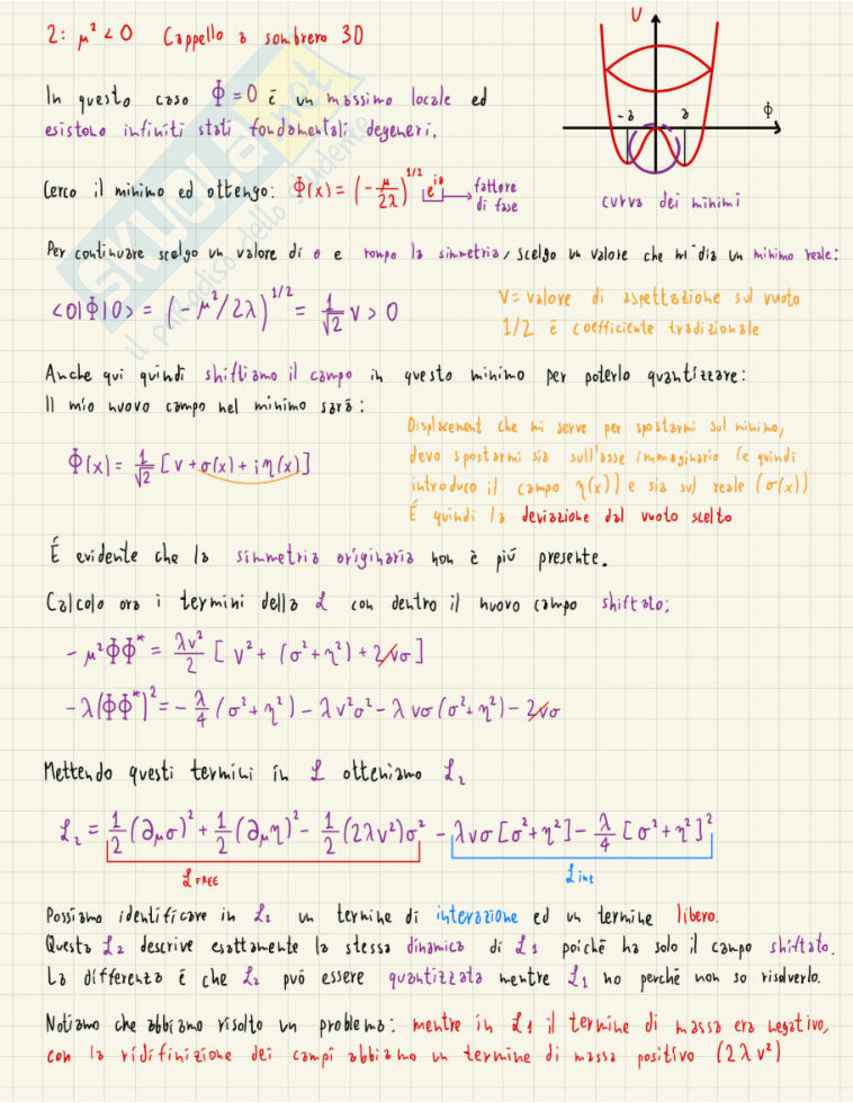 2: μ² < 0 Cappello a sombrero 3D
V
In questo caso Φ = 0 è un massimo locale ed
esistono infiniti stati fondamentali degeneri.
-a
a
Φ
Cerco il minimo ed ottengo: Φ(x) = (-μ/2λ)^1/2 e^iθ → fattore
di fase
curva dei minimi
Per continuare scelgo un valore di θ e rompo la simmetria, scelgo un valore che mi dia un minimo reale:
<0|Φ|0> = (-μ²/2λ)^1/2 = 1/√2 v > 0
V = valore di aspettazione sul vuoto
1/2 è coefficiente tradizionale
Anche qui quindi shiftiamo il campo in questo minimo per poterlo quantizzare:
Il mio nuovo campo nel minimo sarà:
Φ(x) = 1/√2 [v + σ(x) + iη(x)]
Displacement che mi serve per spostarmi sul minimo,
devo spostarmi sia sull'asse immaginario (e quindi
introduco il campo η(x)) e sia sul reale (σ(x))
É quindi la deviazione dal vuoto scelto
É evidente che la simmetria originaria non è più presente.
Calcolo ora i termini della ℒ con dentro il nuovo campo shiftato:
-μ²ΦΦ* = λv²/2 [v² + (σ²+η²) + 2vσ]
-λ(ΦΦ*)² = -λ/4 (σ²+η²) - λv²σ² - λvσ(σ²+η²) - 2vσ
Mettendo questi termini in ℒ otteniamo ℒ₂
ℒ₂ = 1/2(∂μσ)² + 1/2(∂μη)² - 1/2(2λv²)σ² - λvσ[σ²+η²] - λ/4[σ²+η²]²
ℒ FREE
ℒ int
Possiamo identificare in ℒ₂ un termine di interazione ed un termine libero.
Questa ℒ₂ descrive esattamente la stessa dinamica di ℒ₁ poichè ha solo il campo shiftato.
La differenza è che ℒ₂ può essere quantizzata mentre ℒ₁ no perchè non so risolverlo.
Notiamo che abbiamo risolto un problema: mentre in ℒ₁ il termine di massa era negativo,
con la ridifinizione dei campi abbiamo un termine di massa positivo (2λv²)
SKUOLA.not
il paradiso dello studente